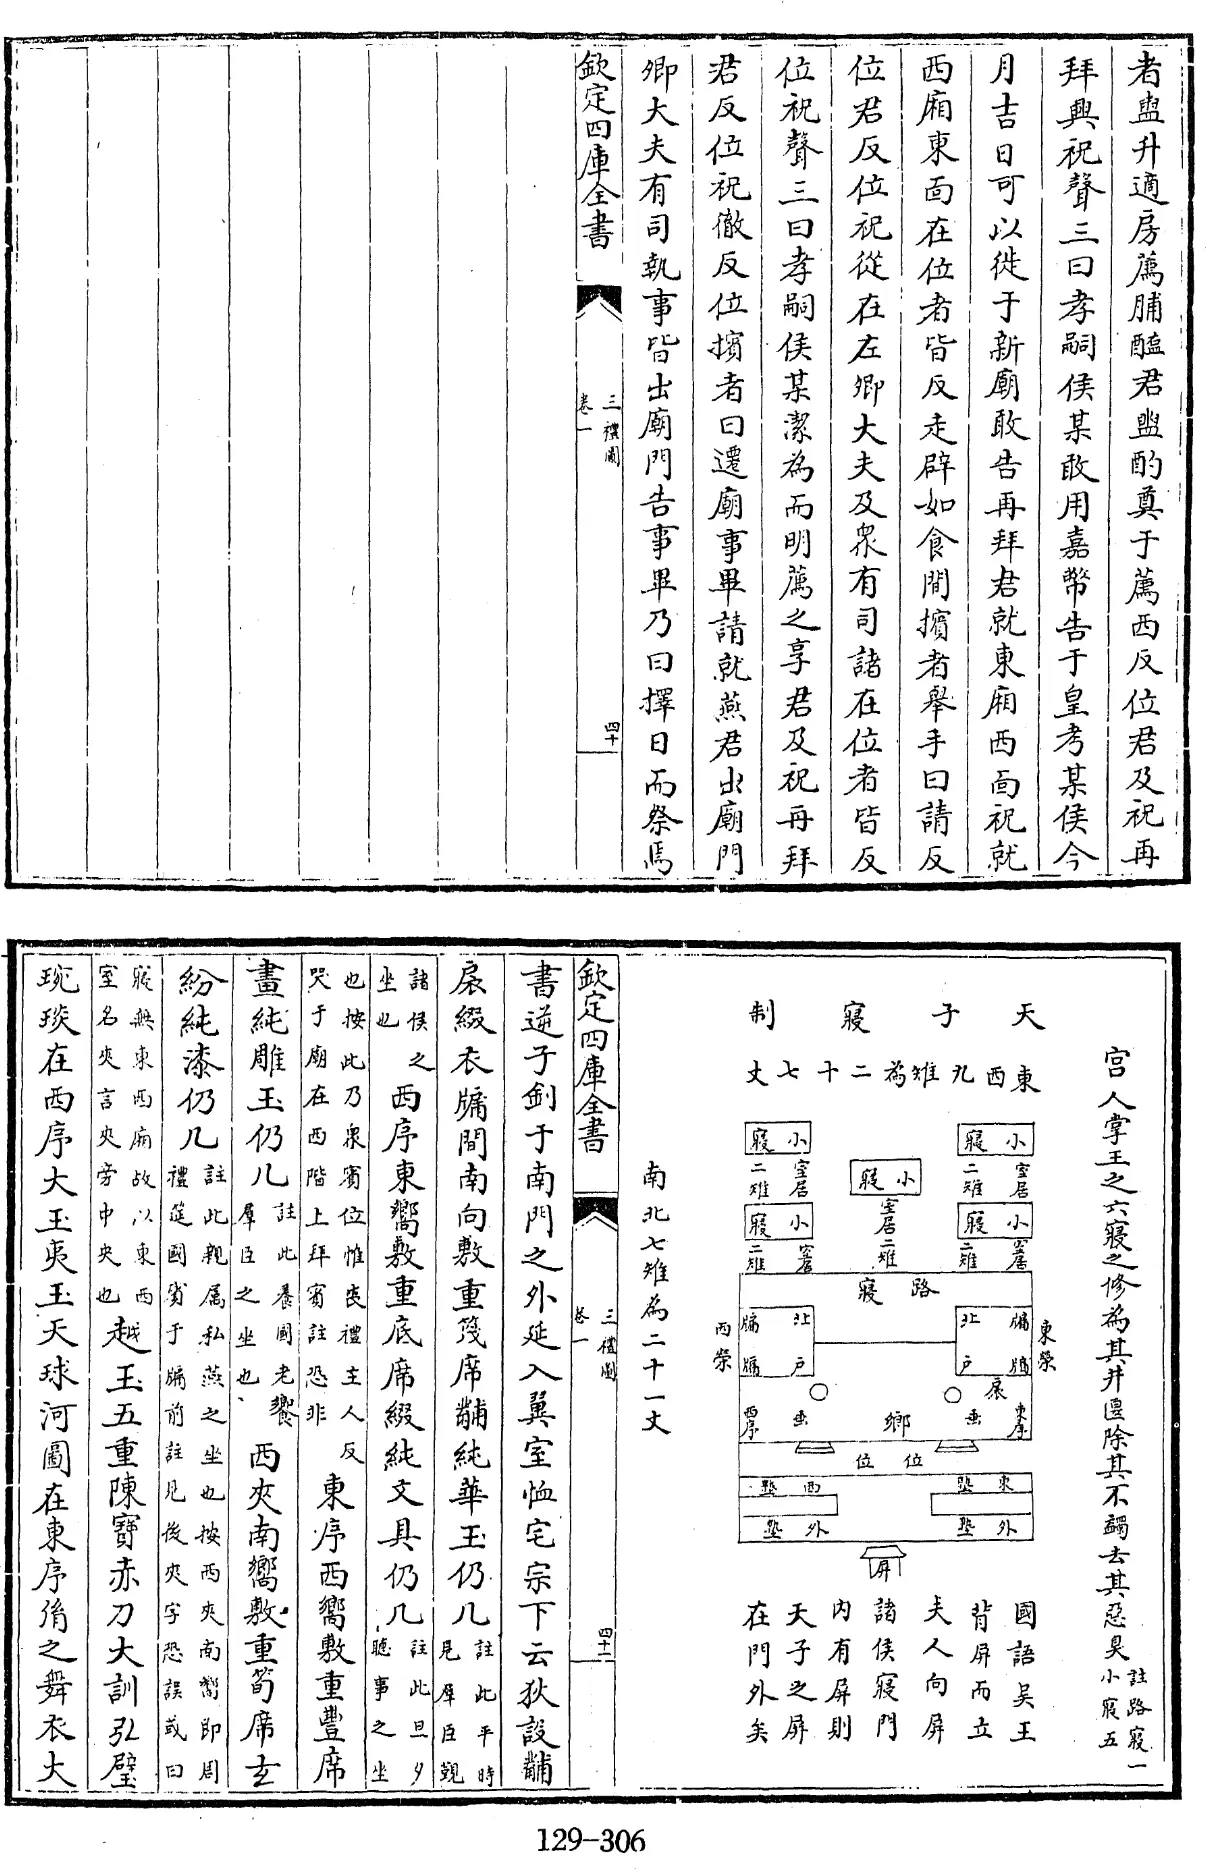 者盥升適房薦脯醢君盥酌奠于薦西反位君及祝再
拜興祝聲三曰孝嗣侯某敢用嘉幣告于皇考某侯今
月吉日可以徙于新廟敢告再拜君就東廂西面祝就
西廂東面在位者皆反走辟如食間擯者舉手曰請反
位君反位祝從在左卿大夫及衆有司諸在位者皆反
位祝聲三曰孝嗣侯某潔為而明薦之享君及祝再拜
君反位祝徹反位擯者曰遷廟事畢請就燕君出廟門
卿大夫有司執事皆出廟門告事畢乃曰擇日而祭焉
欽定四庫全書
三禮圖
卷一
四十
宮人掌王之六寢之修為其井匽除其不蠲去其惡臭
註路寢一
小寢五
天子寢制
東西九雉為二十七丈
小寢
室居二雉
小寢
室居二雉
小寢
室居二雉
小寢
室居二雉
小寢
室居二雉
路寢
東榮
西榮
北牖
北牖
戶牖
戶牖
扆
東序
西序
鄉
位
位
東塾
西塾
外塾
外塾
屏
南北七雉為二十一丈
國語吳王
背屏而立
夫人向屏
諸侯寢門
內有屏則
天子之屏
在門外矣
欽定四庫全書
三禮圖
卷一
四十一
書逆子釗于南門之外延入翼室恤宅宗下云狄設黼
扆綴衣牖間南向敷重篾席黼純華玉仍几
註此平時
見羣臣覲
諸侯之
坐也
西序東嚮敷重底席綴純文具仍几
註此旦夕
聽事之坐
也按此乃衆賓位惟喪禮主人反
哭于廟在西階上拜賓註恐非
東序西嚮敷重豐席
畫純雕玉仍几
註此養國老饗
羣臣之坐也
西夾南嚮敷重筍席玄
紛純漆仍几
註此親属私燕之坐也按西夾南嚮即周
禮筵國賓于牖前註見後夾字恐誤或曰
寢無東西廂故以東西
室名夾言夾旁中央也
越玉五重陳寶赤刀大訓引璧
琬琰在西序大玉夷玉天球河圖在東序㣧之舞衣大
129-306